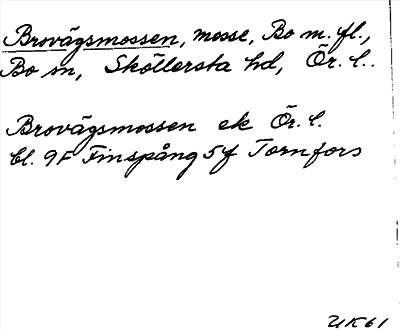 Brovägsmossen, mosse, Bo m. fl.,
Bo sn, Sköllersta hd, Ör. l..
Brovägsmossen ek Ör. l.
bl. 9F Finspång 5f Tornfors
UK61